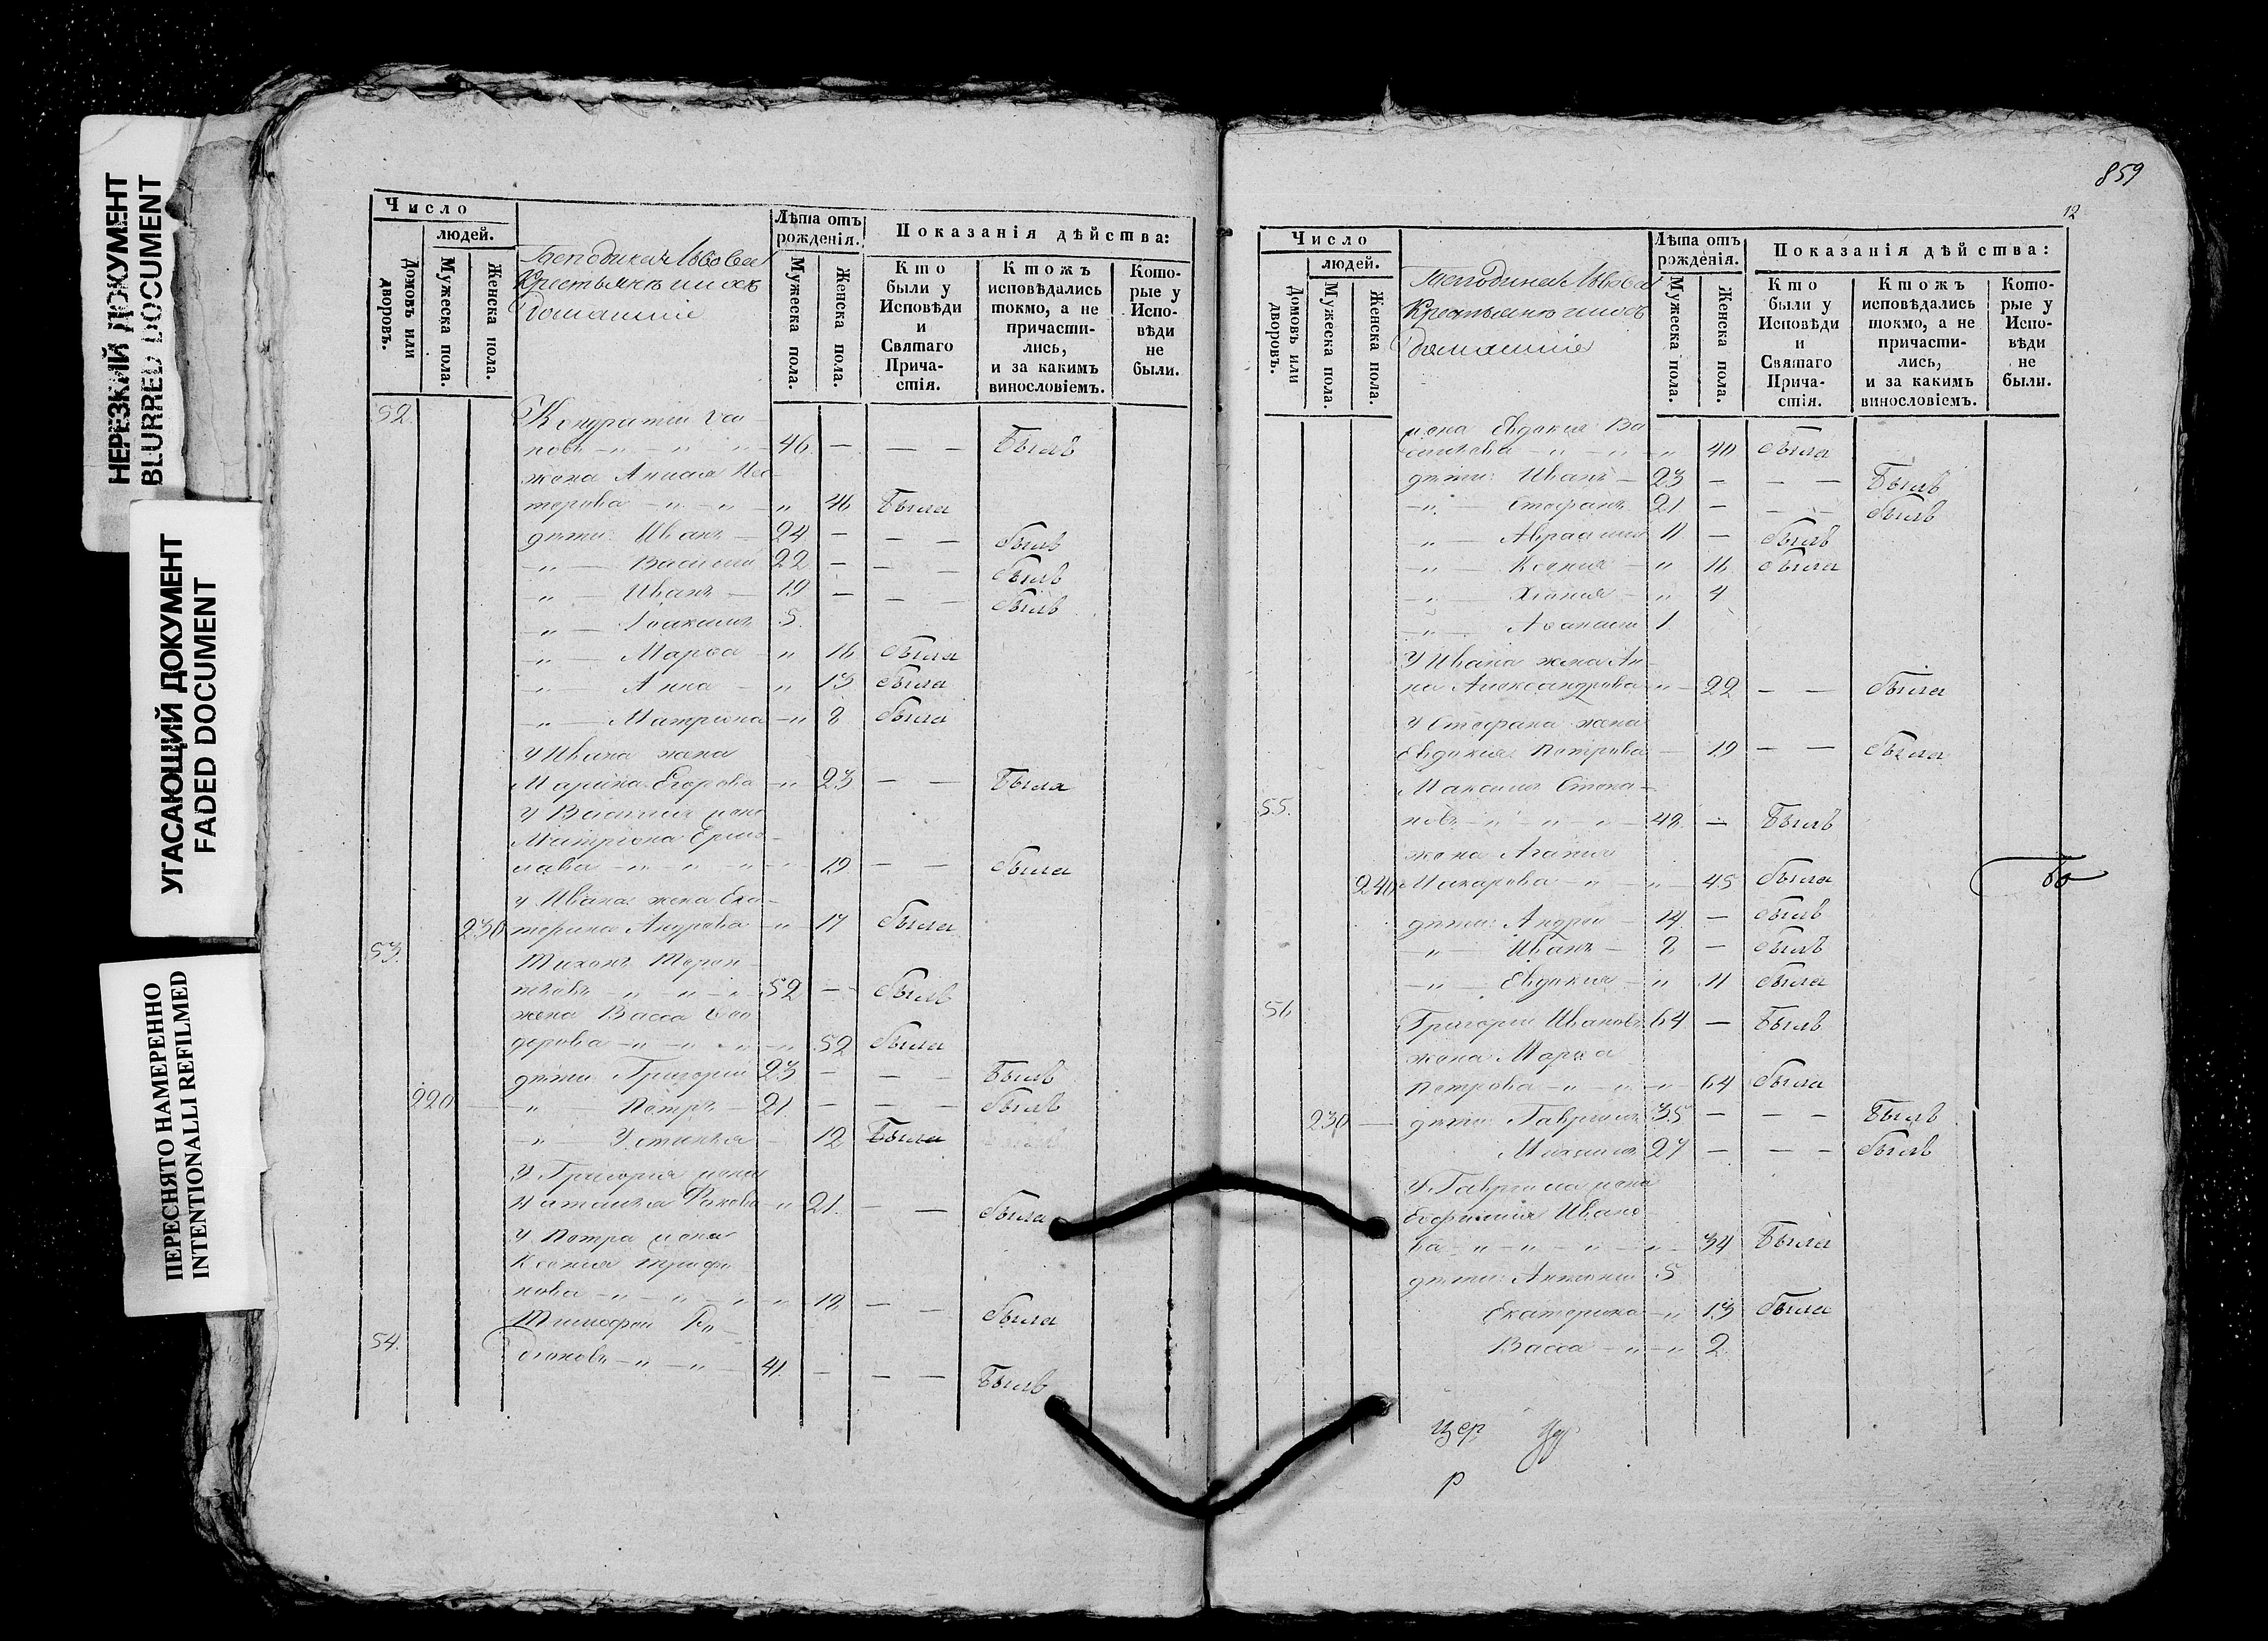 НЕРЕЗКИЙ ДОКУМЕНТ
BLURRED DOCUMENT
УГАСАЮЩИЙ ДОКУМЕНТ
FADED DOCUMENT
ПЕРЕСНЯТО НАМЕРЕННО
INTENTIONALLI REFILMED
Число
людей.
Домовъ или дворовъ.
Мужеска пола.
Женска пола.
Крестьянъ ихъ
Домашніе
Лѣта отъ рожденія.
Мужеска пола.
Женска пола.
Показанія дѣйства:
Кто были у Исповѣди и Святаго Прича-стія.
Ктожъ исповѣдались токмо, а не причасти-лись, и за какимъ винословіемъ.
Кото-рые у Испо-вѣди не были.
52. Кондратій
новъ 46 — — — Былъ
жена Анисія Нес-
терова " 46 Была
дѣти: Иванъ — 24 — — — былъ
" — Василій 22 — — — былъ
" — Иванъ — 19 — — — былъ
" — Іоакимъ 5.
" — Марѳа " 16 была
" — Анна — " 13 была
" — Матрона — " 8 была
У Ивана жена
Марина Егорова — " 23 — — Была
У Василія жена
Матрона Ермо-
лаева 19 — — была
У Ивана жена Ека-
230 терина Андреева — " 17 была
53. Тихонъ Терен-
тьевъ 52 — былъ
жена Васса Ѳео-
дорова 52 была
дѣти: Григорій 23 — — — Былъ
220 — " — Петръ — 21. — — — былъ
" — Устинья — 12 Была
У Григорія жена
Наталья — " 21. — — была
У Петра жена
Ксенія Трифо-
нова 18 — — была
54. Тимофей
41. — — — Былъ
859
12
Число
людей.
Домовъ или дворовъ.
Мужеска пола.
Женска пола.
Крестьянъ ихъ
Домашніе
Лѣта отъ рожденія.
Мужеска пола.
Женска пола.
Показанія дѣйства:
Кто были у Исповѣди и Святаго Прича-стія.
Ктожъ исповѣдались токмо, а не причасти-лись, и за какимъ винословіемъ.
Кото-рые у Испо-вѣди не были.
жена Евдокія Ва
сильева 40 была
дѣти: Иванъ — 23 — — — Былъ
" — Стефанъ 21 — — — былъ
" — Авраамій 11 — былъ
" — Ксенія — " 16 была
" — " 4
" — Аѳанасій 1
У Ивана жена Ан-
на Александрова — " 22 — — была
У Стефана жена
Евдокія Петрова — 19 — — была
55. Максимъ Степа-
новъ 48. — Былъ
жена Агапія
240 Макарова — " — " 45 была
дѣти: Андрей — 14. — былъ
" — Иванъ — 8 — былъ
" — Евдокія — " 11 была
56 Григорій Ивановъ 64 — Былъ
жена Марѳа
Петрова 64 была
230 — дѣти: Гавріилъ 35 — — — Былъ
Михаилъ 27 — — — былъ
У Гавріила жена
Евфимія Ивано-
ва 34 Была
дѣти: Антоній 5
Екатерина — " 13 была
Васса — " — " 2
цер
р